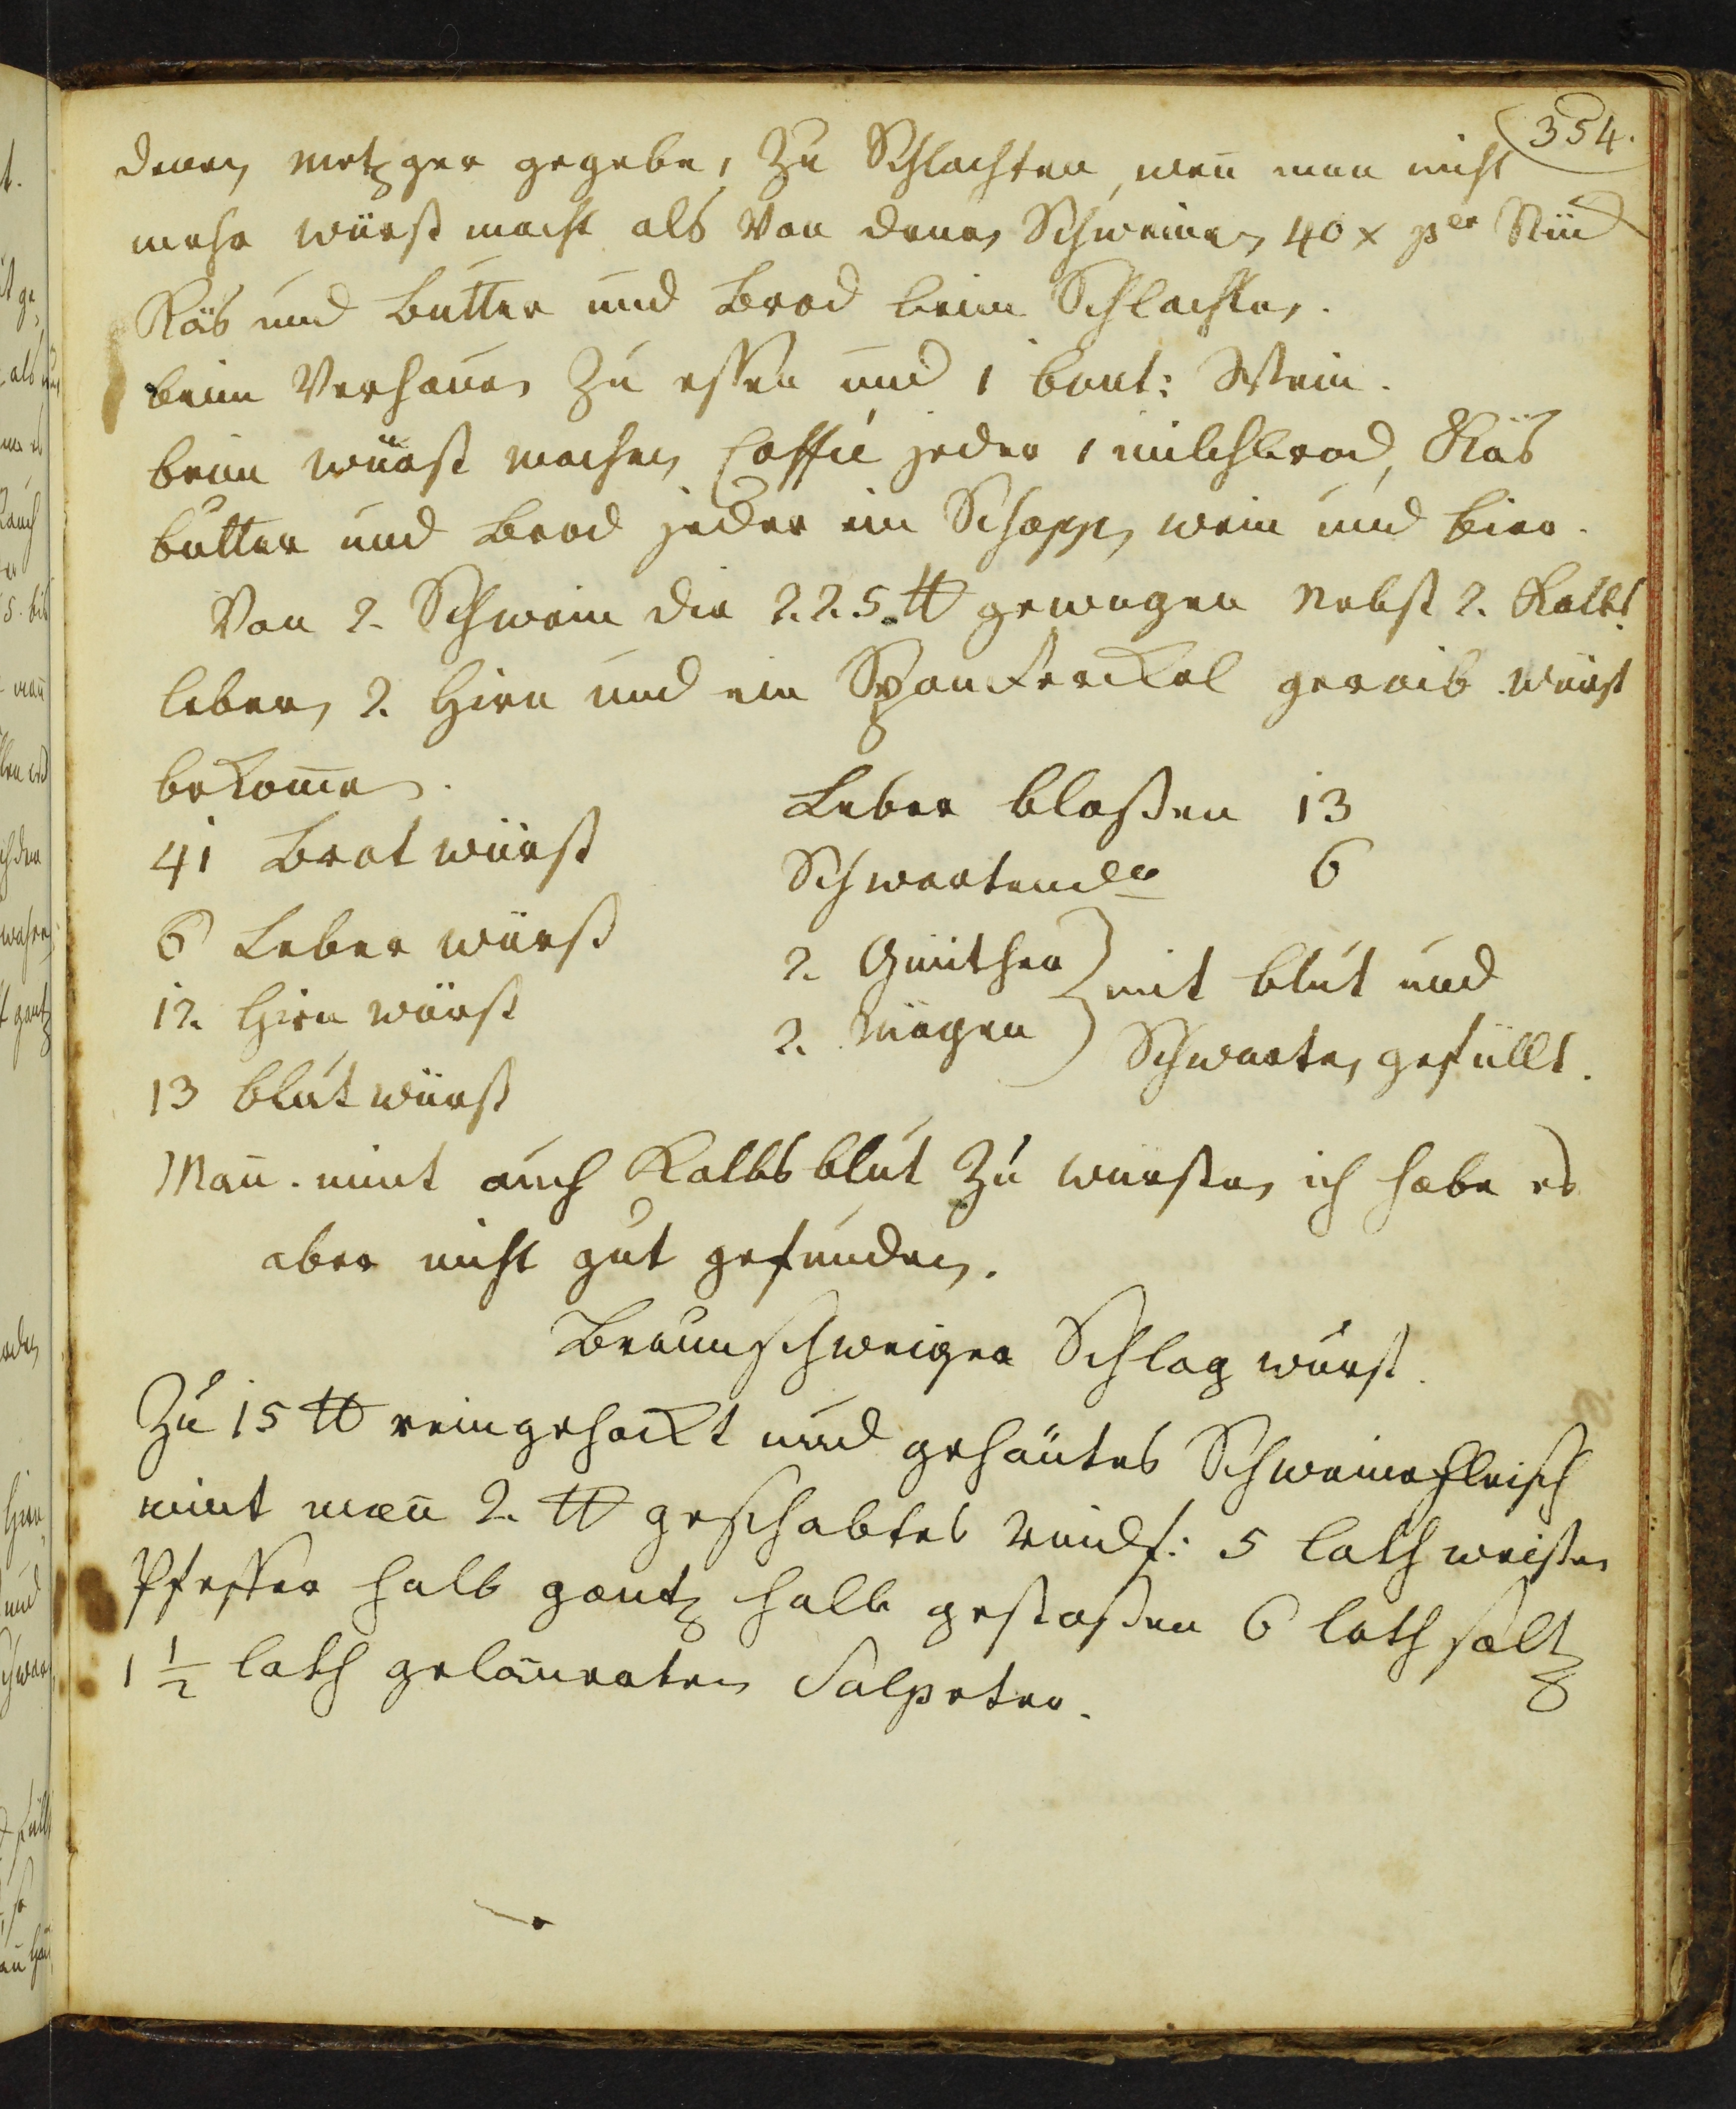 354.
denen Metzger gegebe, Zu Schlachten, wen̄ man nicht
mehr würst macht als Von denen Schweinen 40 x per Stück
Käs und Butter und Brod beim Schlachten.
beim Verhauen Zu essen und 1 bout: Wein.
beim würst machen Caffie jeder 1 milchbrod, Käs
butter und Brod jeder ein Schoppen wein und bier.
Von 2. Schwein die 225 ℔ gewogen Nebst 2. Kalbs
lebern, 2. Hirn und ein Spanferckel würst
bekom̄en.
41 Brat würst
6 Leber würst
12. Hirn würst
13 blut würst
Leber blaßen 13
Schwartend.o 6
2. mit blut und
2. Mägen Schwarten gefüllt.
Man̄. nimt auch Kalbs blut Zu würsten, ich habe es
aber nicht gut gefunden.
Braunschweiger Schlag würst.
Zu 15 ℔ reingehackt und gehäutes Schweinefleisch
nimt man̄ 2. ℔ geschabtes Rindf: 5 loth weissen
Pfeffer halb gantz halb gestoßen 6 loth saltz
1 1/2 loth geläuterten Salpeter.